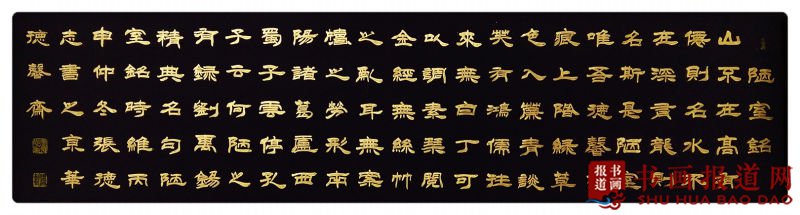 陋室銘
山不在高有
僊則名水不
在深有龍則
名斯是陋室
唯吾德馨
痕上階綠草
色入簾青談
笑有鴻儒往
來無白丁可
以調素琴閱
金經無絲竹
之亂耳無案
牘之勞形南
陽諸葛廬西
蜀子雲停孔
子云何陋之
有錄劉禹錫
精典名句陋
室銘時維丙
申仲冬張德
志書之京華
德馨齋
书画报道
书画报道网
SHU HUA BAO DAO